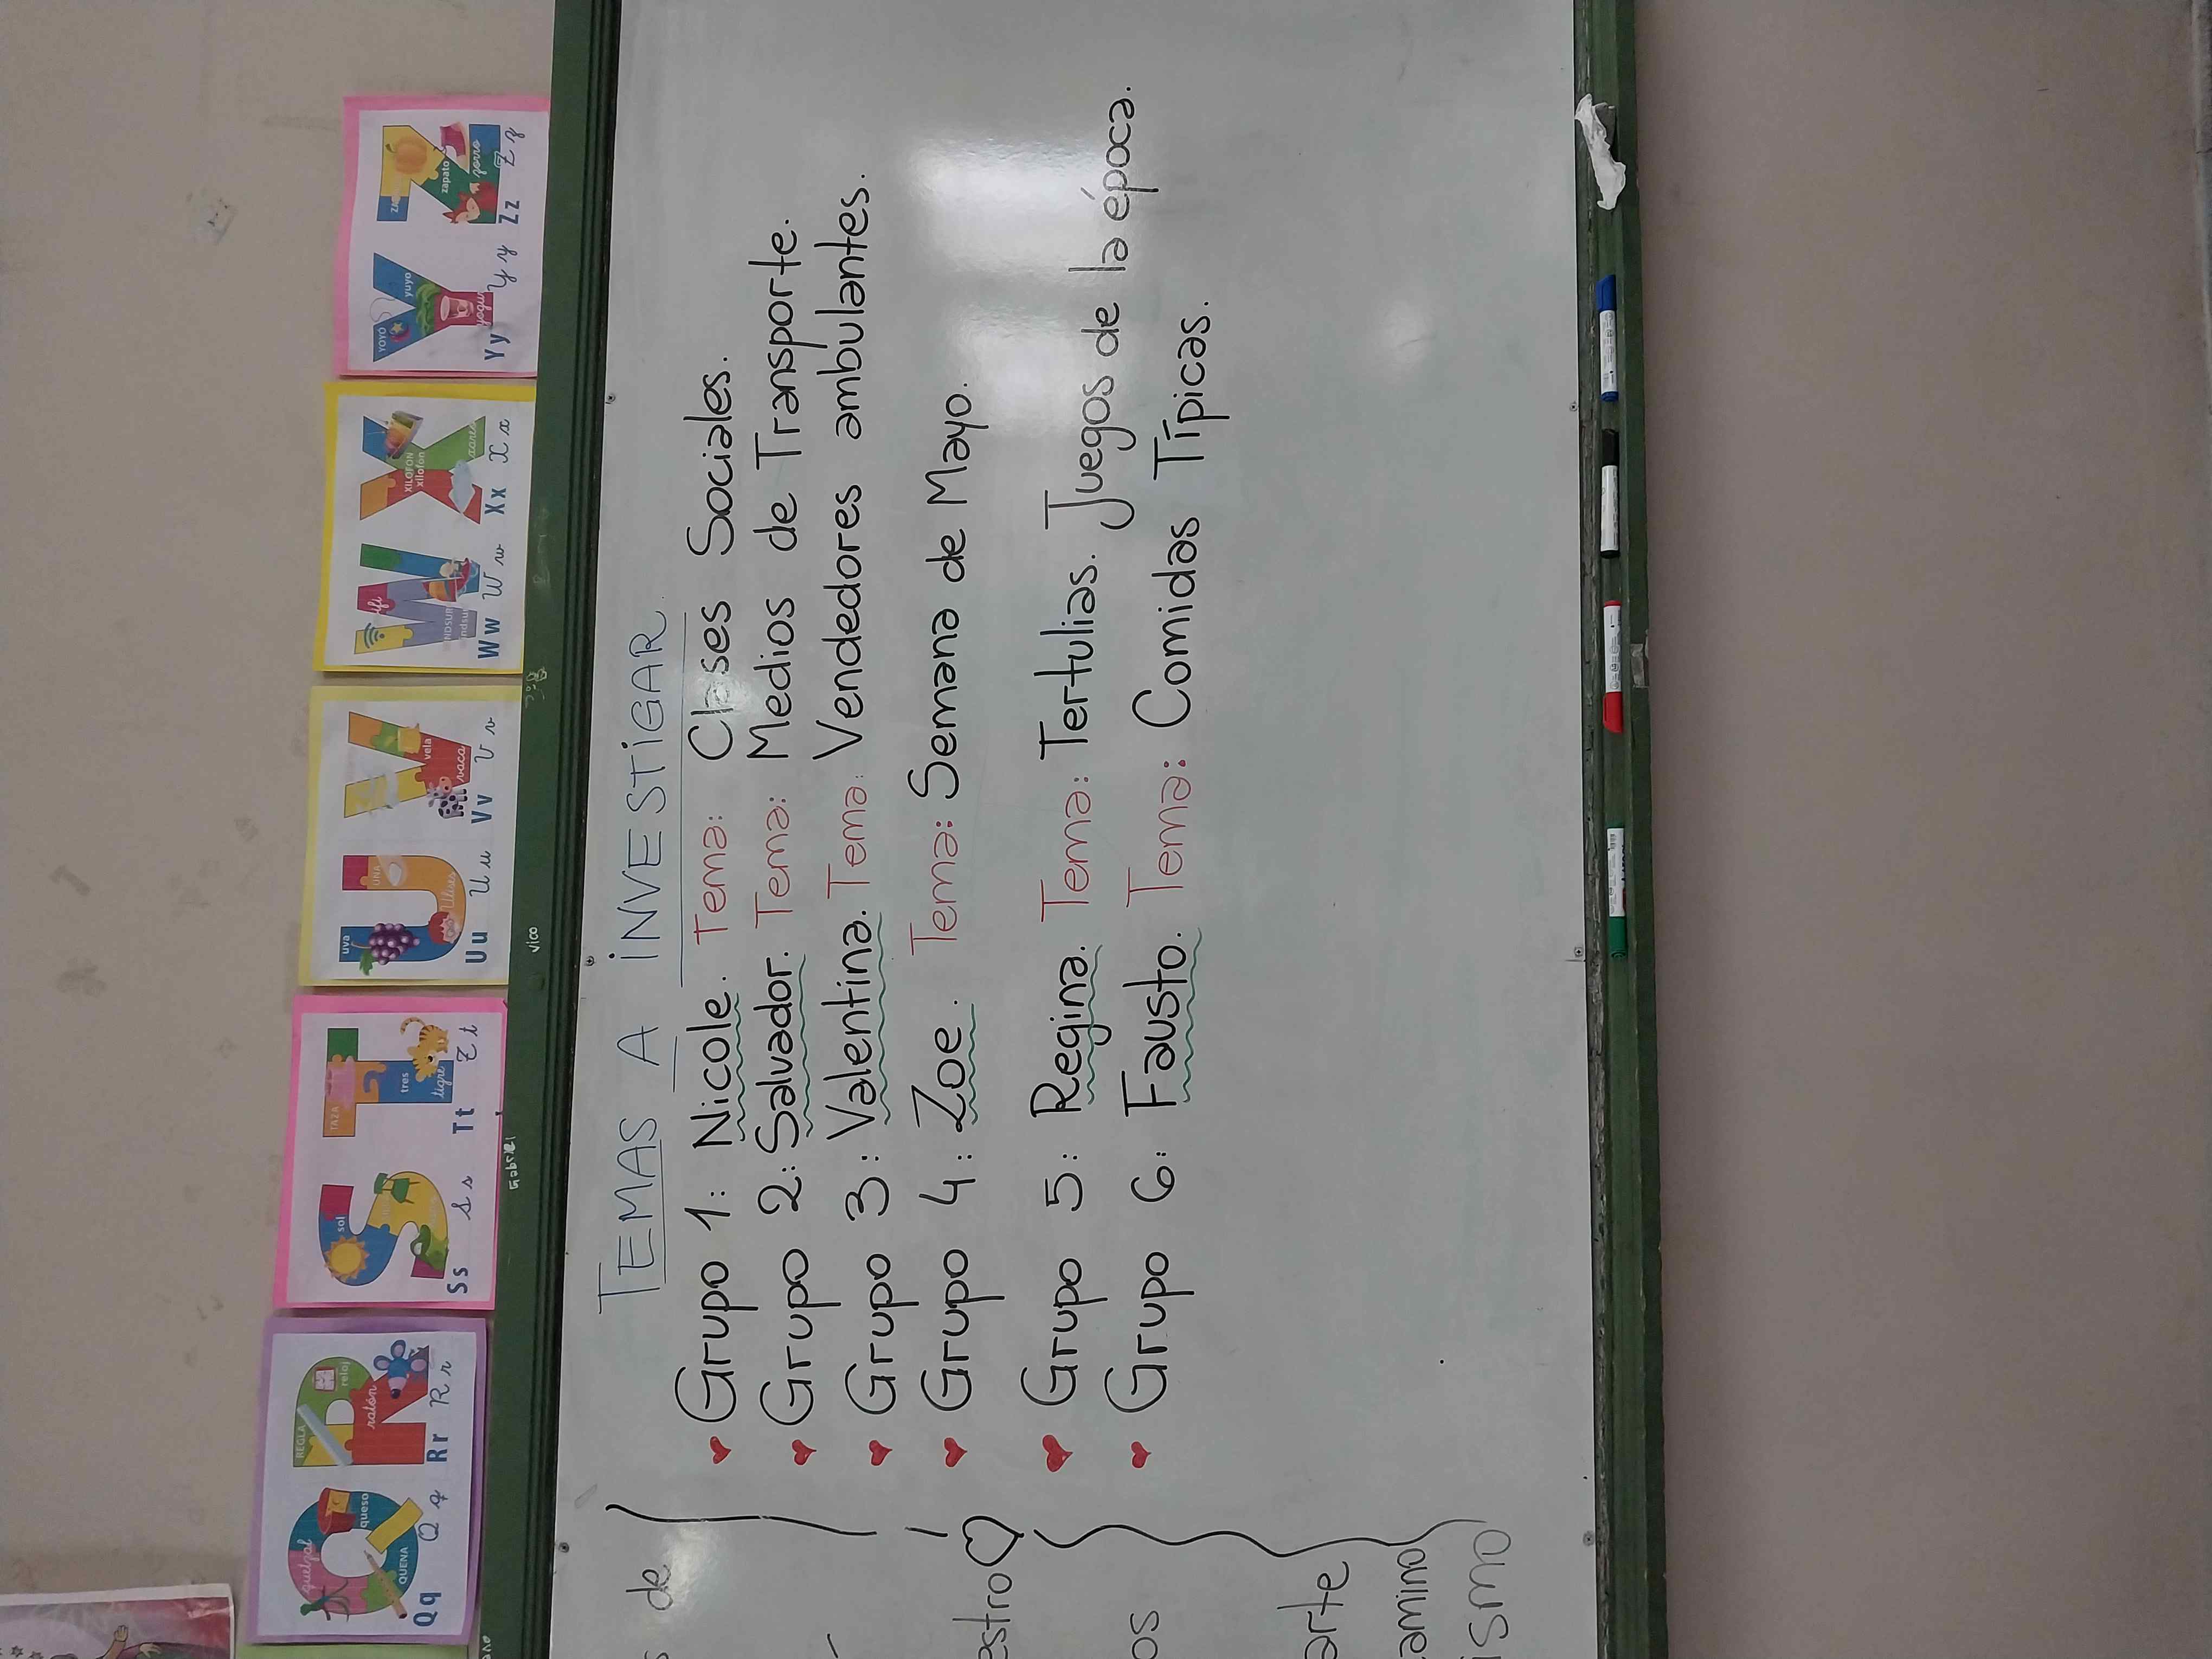 TEMAS A INVESTIGAR.
Grupo 1: Nicole. Tema: Clases Sociales.
Grupo 2: Salvador. Tema: Medios de Transporte.
Grupo 3: Valentina. Tema: Vendedores ambulantes.
Grupo 4: Zoe. Tema: Semana de Mayo.
Grupo 5: Regina. Tema: Tertulias. Juegos de la época.
Grupo 6: Fausto. Tema: Comidas Típicas.
de
estro
os
arte
amino
ismo
quetzal
queso
QUENA
Qq Q q
REGLA
reloj
ratón
Rr R r
sol
Ss S s
TAZA
tres
tigre
Tt T t
uva
UÑA
Uu U u
vela
vaca
Vv V v
Ww W w
XILOFON
xilofón
Xx X x
YOYÓ
yuyo
yogur
Yy Y y
zapato
zorro
Zz Z z
Gabriel
vico